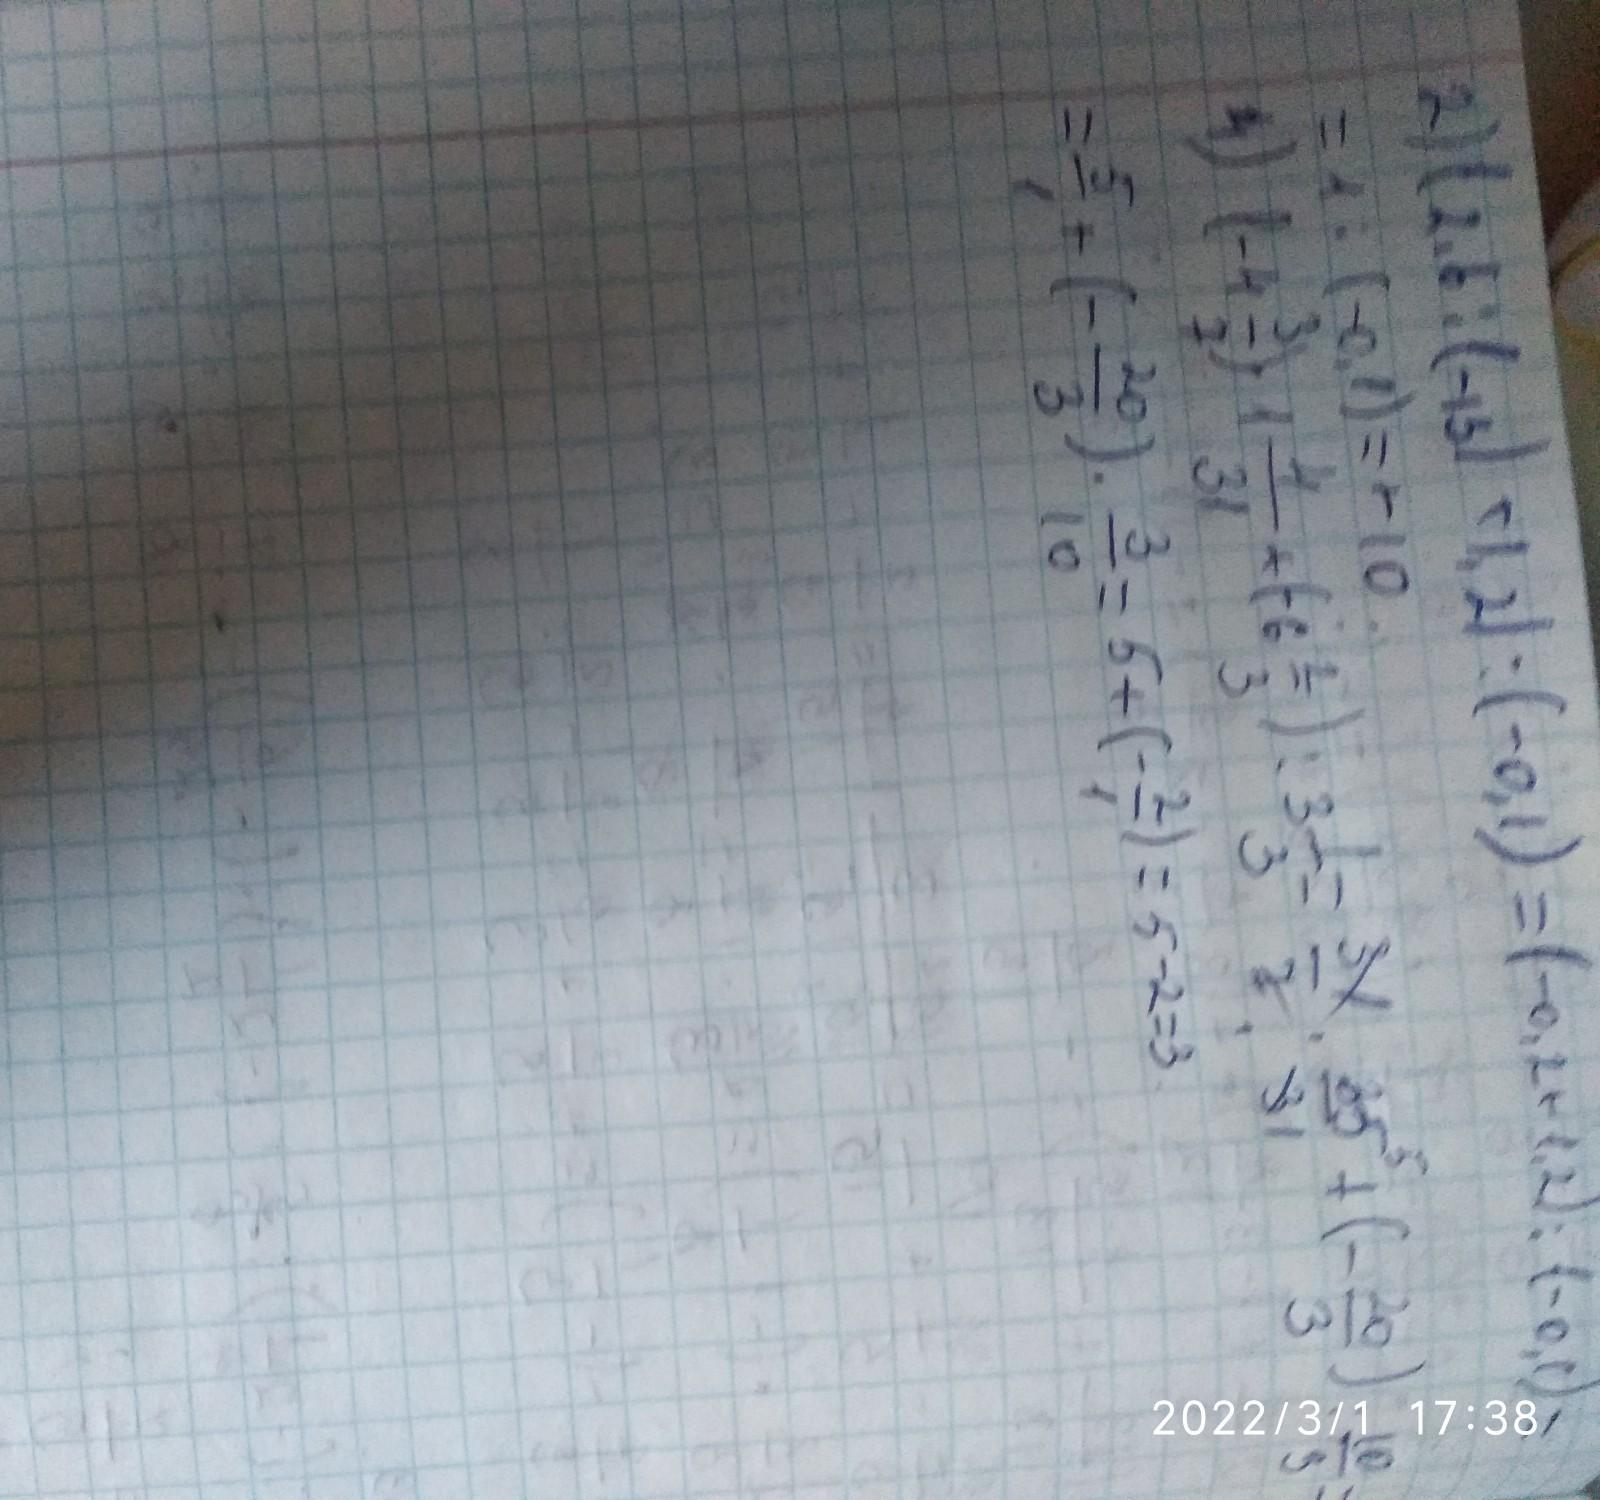 2) (2,6 : (-13) + 1,2) : (-0,1) = (-0,2 + 1,2) : (-0,1) =
= 1 : (-0,1) = -10
4) (-4 3/7) · 1 4/31 + (-6 2/3) : 3 1/3 = 31/7 · 35⁵/31 + (-20/3) 10/3 =
= 5/1 + (-20/3) · 3/10 = 5 + (-2/1) = 5 - 2 = 3
2022/3/1 17:38